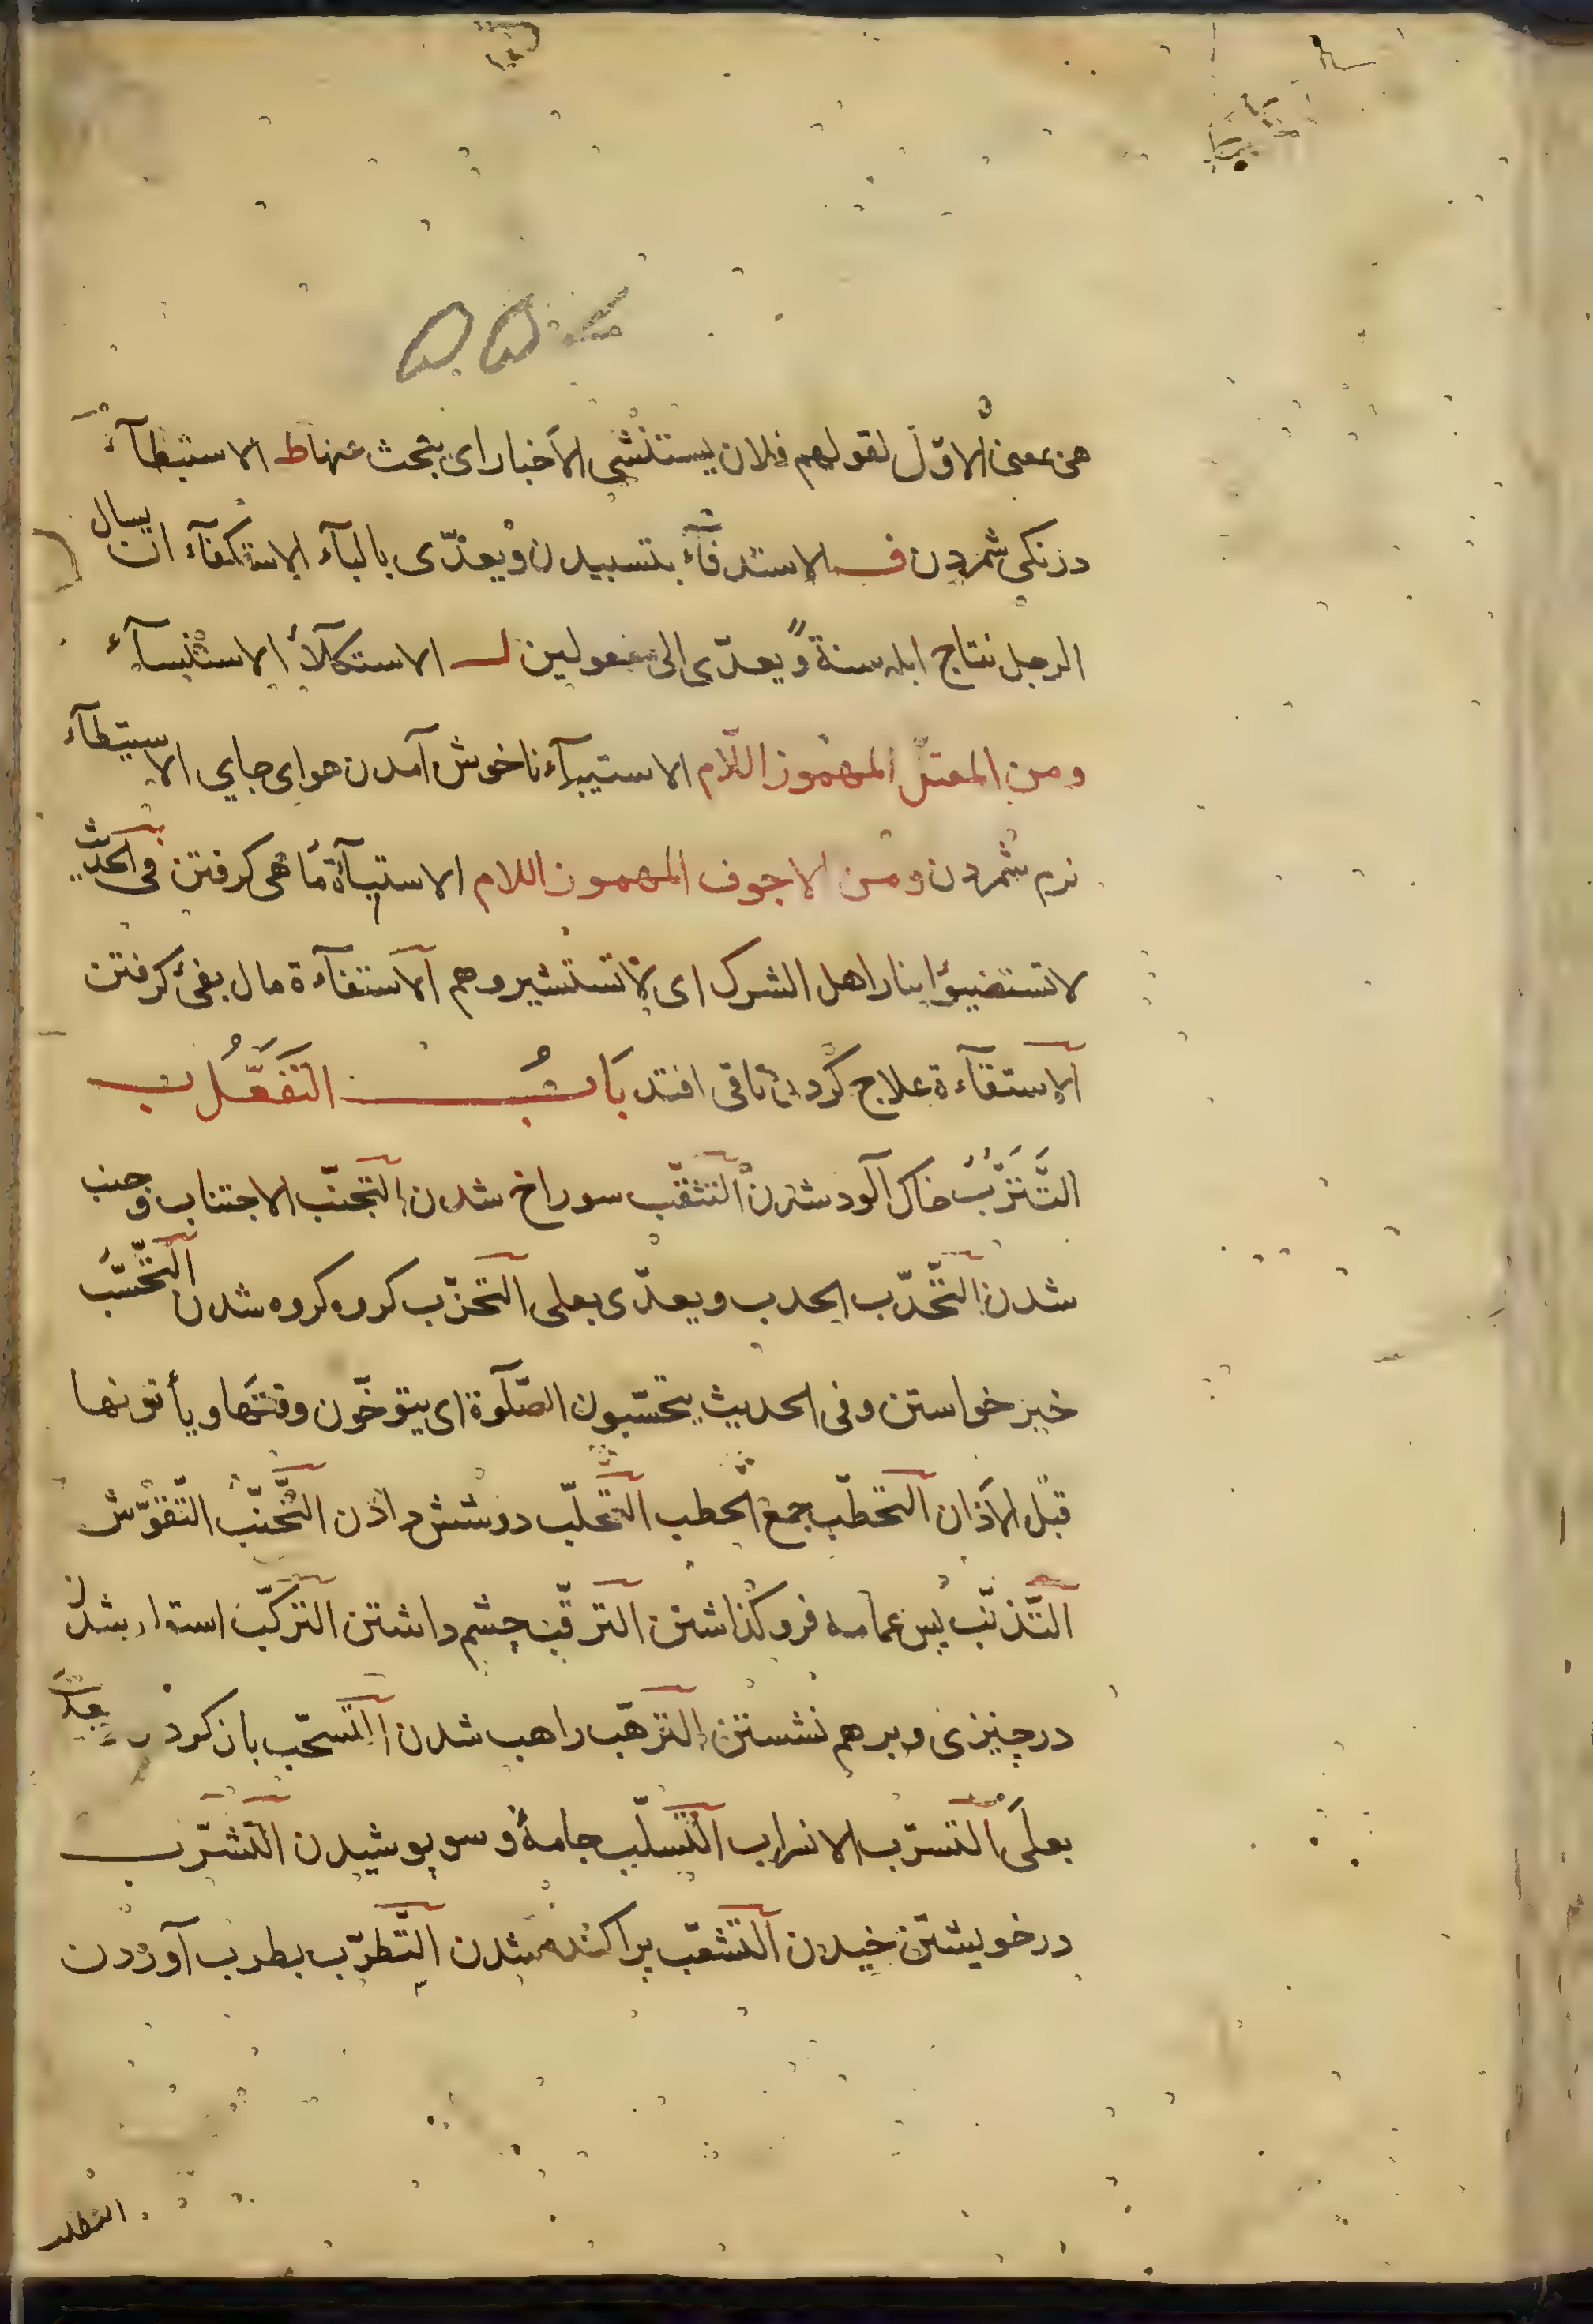 من معنى الاوّل لقولهم فلان يستنشى الاخبار اى يبحث عنها ط الاستبطآء
درنكى شمردن ف الاستدفآء بتسبيدن ويعدّى بالبآء الاستكفآء ان يسال
الرجل نتاج ابله سنة ويعدّى الى مفعولين ل الاستكلآء الاستنسآء
ومن المعتلّ المهموز اللّام الاستيبآء ناخوش آمدن هواى جاى الاستيطآء
نرم شمردن ومن الاجوف المهموز اللام الاستبآءة ماهى كرفتن فى الحديث
لا تستضيؤا بنار اهل الشرك اى لا تستشيروهم الاستفآءة مال بفئ كرفتن
الاستقآءة علاج كردن تا قى افتد بَابُ التَفَعُّل ب
التَّتَرُّبُ خاك آلود شدن التثقّب سوراخ شدن التجنّب الاجتناب وجنب
شدن التّحدّب الحدب ويعدّى بعلى التحزّب كروه كروه شدن التّحسّب
خبر خواستن وفى الحديث يتحسّبون الصّلوة اى يتوخّون وقتها ويأتونها
قبل الاذان التحطّب جمع الحطب التحلّب دوشش دادن التّحنّب التّقوّش
التّذنّب پس عمامه فروكذاشتن الترقّب چشم داشتن التركّب استوار شدن
در چيزى وبرهم نشستن الترهّب راهب شدن التسحّب باز كردن يعدّى
بعلى التسرّب الانسراب التّسلّب جامهٔ سو پوشيدن التشرّب
در خويشتن خيدن التشعّب پراكنده شدن التّطرّب بطرب آوردن